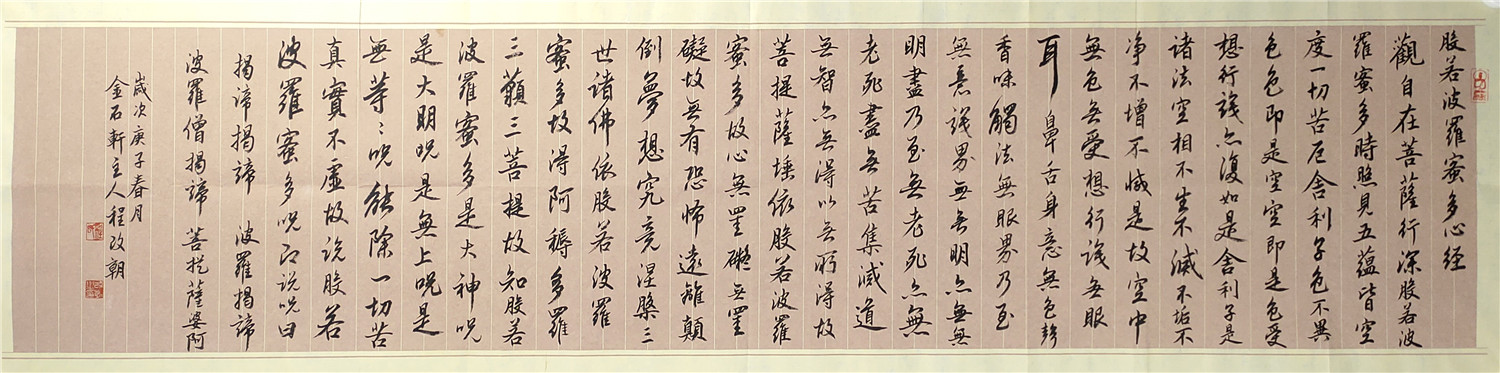 般若波羅蜜多心経
觀自在菩薩行深般若波
羅蜜多時照見五蘊皆空
度一切苦厄舍利子色不異
色色即是空空即是色受
想行識亦復如是舍利子是
諸法空相不生不滅不垢不
净不增不减是故空中
無色無受想行識無眼
耳鼻舌身意無色聲
香味觸法無眼界乃至
無意識界無無明亦無無
明盡乃至無老死亦無
老死盡無苦集滅道
無智亦無得以無所得故
菩提薩埵依般若波羅
蜜多故心無罣礙無罣
礙故無有恐怖遠離顛
倒夢想究竟涅槃三
世諸佛依般若波羅
蜜多故得阿耨多羅
三藐三菩提故知般若
波羅蜜多是大神咒
是大明咒是無上咒是
無等々咒能除一切苦
真實不虛故說般若
波羅蜜多咒即說咒曰
揭諦揭諦 波羅揭諦
波羅僧揭諦 菩提薩婆阿
歲次庚子春月
金石軒主人程改朝